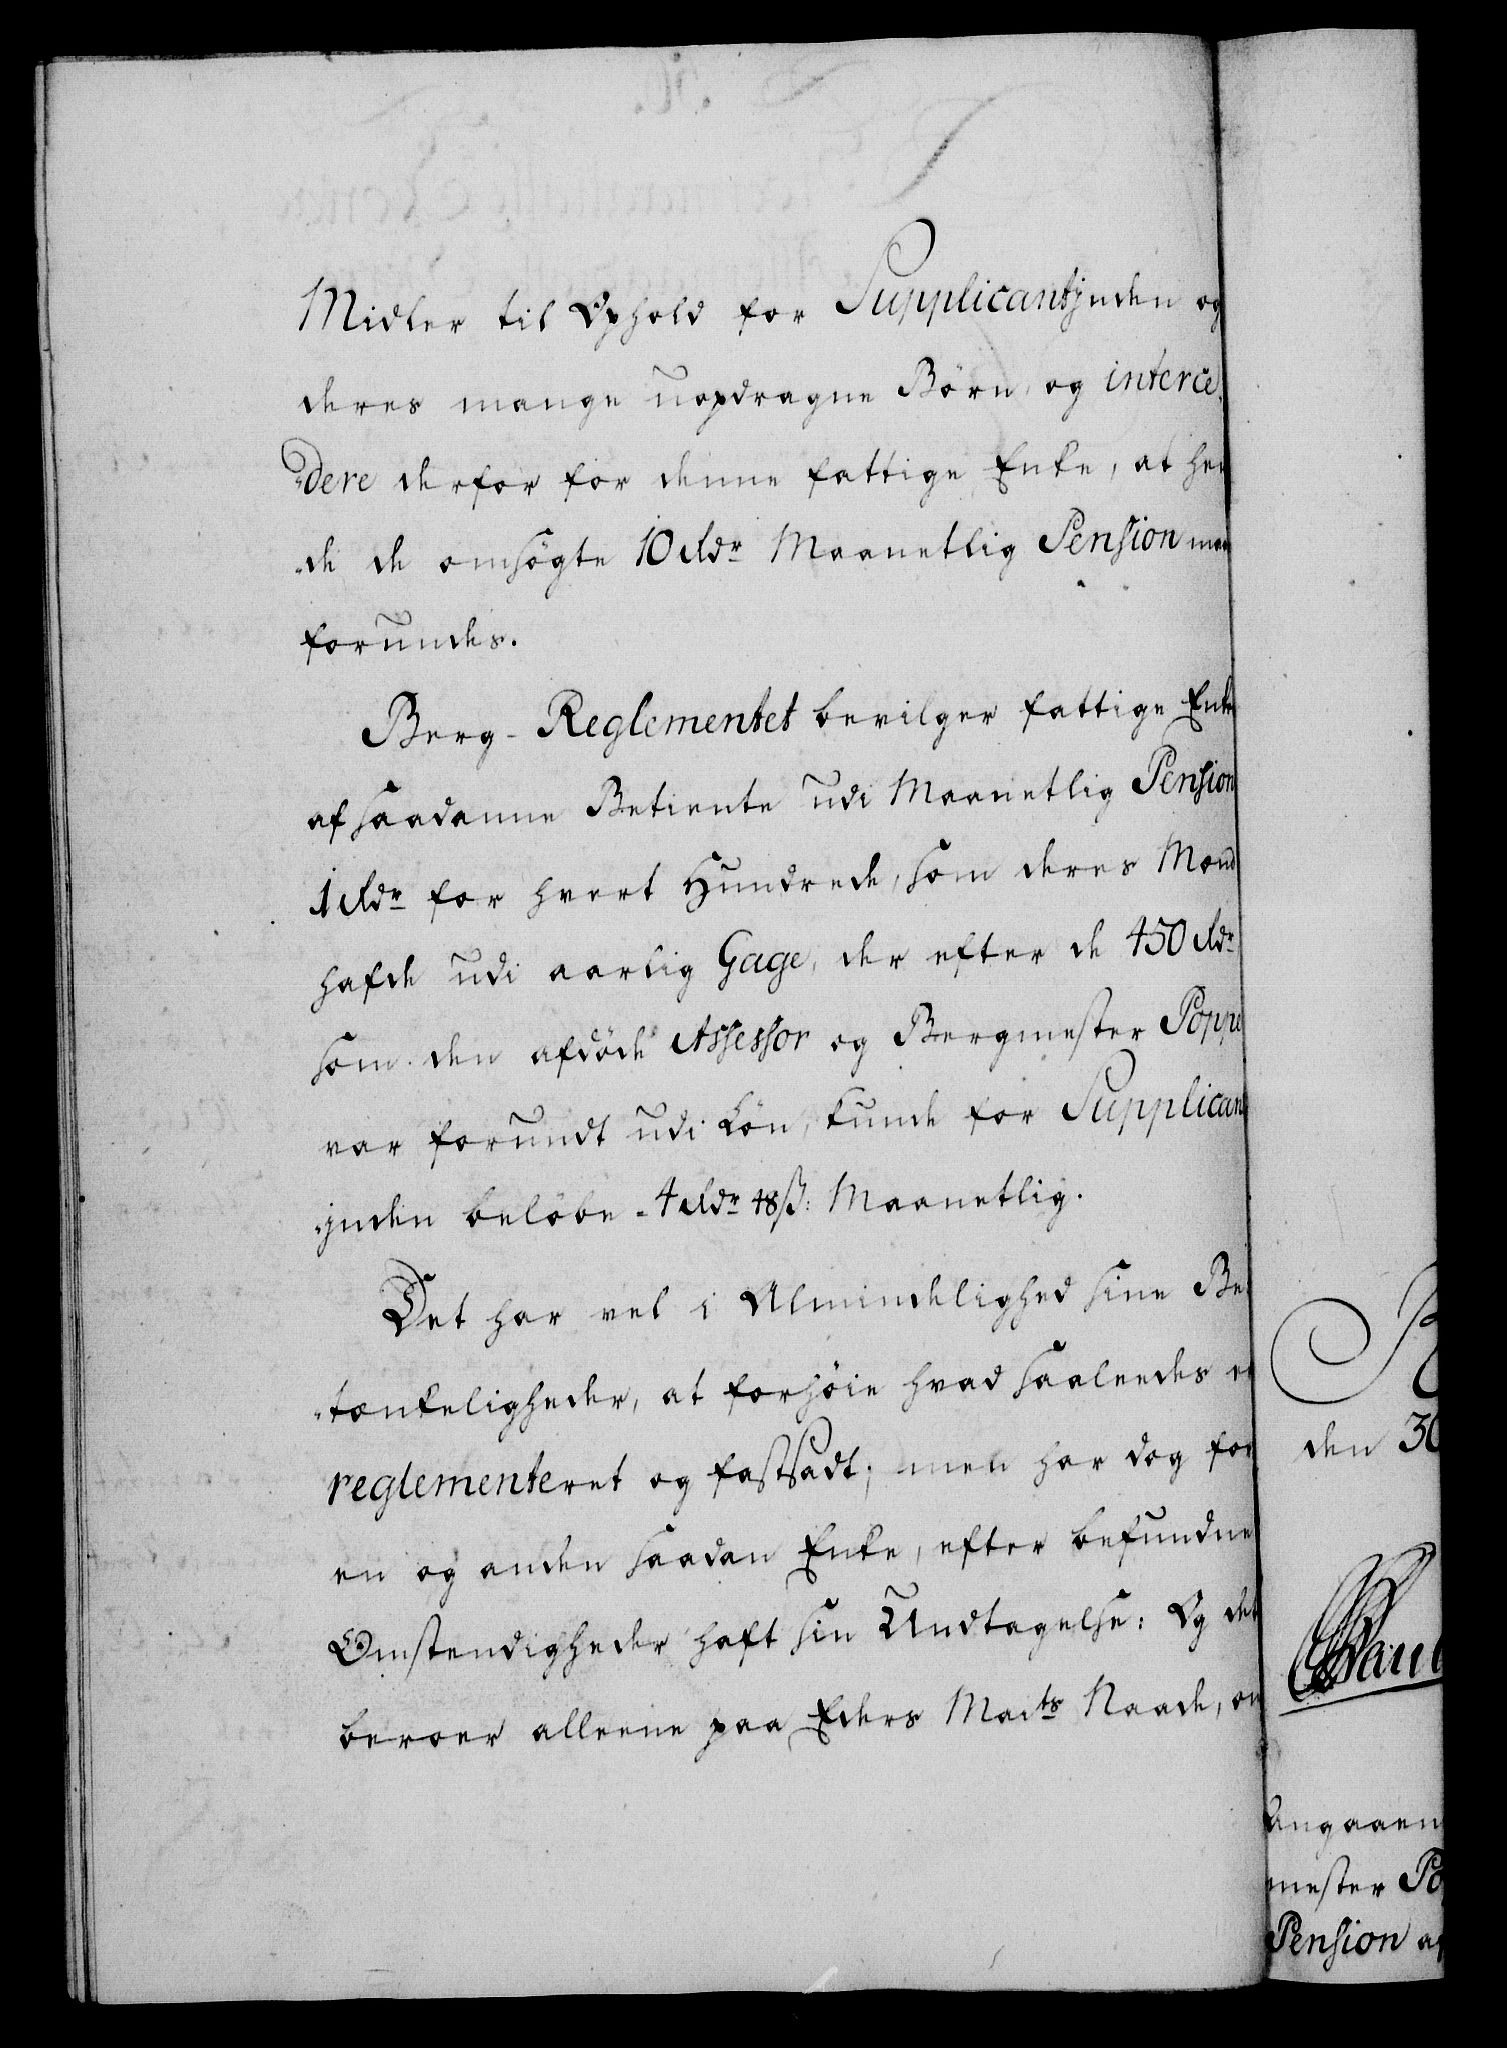 Midler til Ophold for Supplicantjnden og
deres mange uopdragne Børn, og interce¬
dere derfor for denne fattige Enke, at hen¬
de de omsøgte 10 Rdr Maanetlig Pension maa
forundes.
Berg-Reglementet bevilger fattige Enke
af saadanne Betiente udi Maanetlig Pension
1 Rdr for hvert Hundrede, som deres Mænd
hafde udi aarlig Gage, der efter de 450 Rdr
som den afdøde Assessor og Bergmester Poppe
var forundt udi Løn, kunde for Supplicant
jnden beløbe - 4 Rdr 48 ß: Maanetlig.
Det har vel i Almindelighed sine Be¬
tænkeligheder, at forhøie hvad saaleedes er
reglementeret og fastsadt; men har dog for
en og anden saadan Enke, efter befundne
Omstendigheder haft sin Undtagelse: Og det
beroer alleene paa Eders Maits Naade, om
R
den 30
Paul
Angaaen
mester Po
Pension af